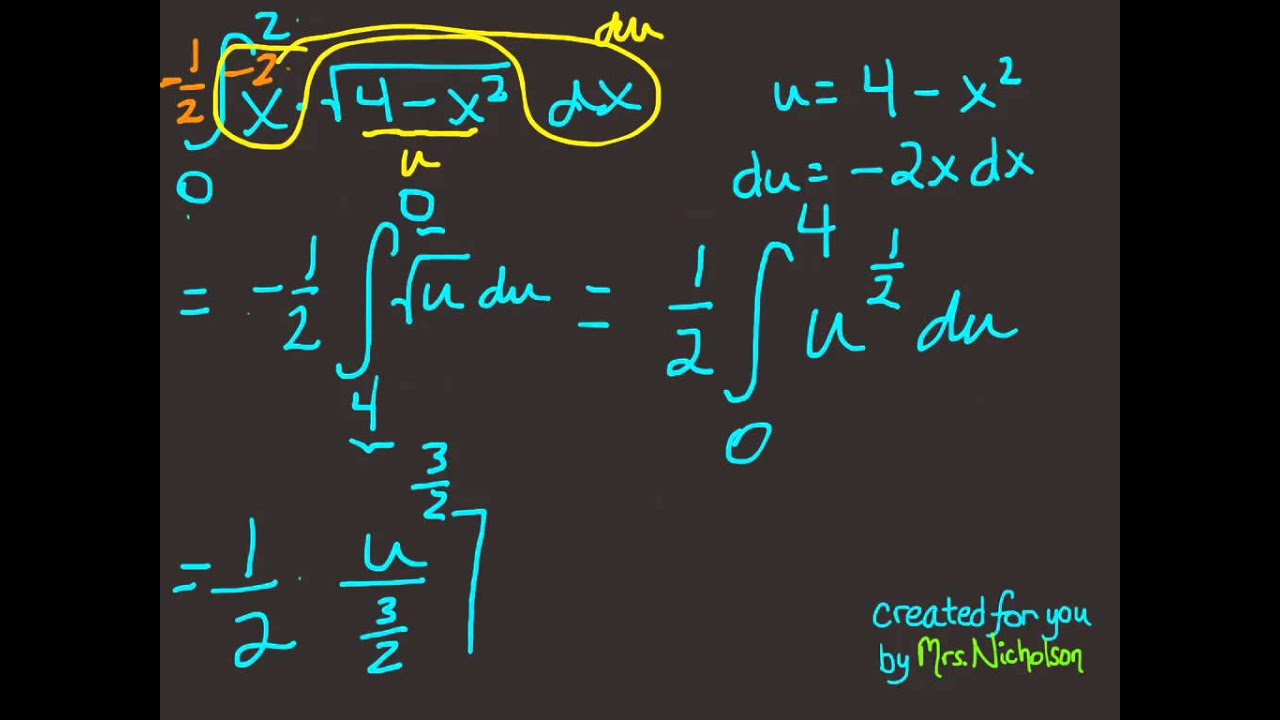 -1/2 ∫₀² -2 x · √(4 - x²) dx du
u
u = 4 - x²
du = -2x dx
= -1/2 ∫₄⁰ √u du = 1/2 ∫₀⁴ u^(1/2) du
= 1/2 · u^(3/2) / (3/2) ]
created for you
by Mrs. Nicholson